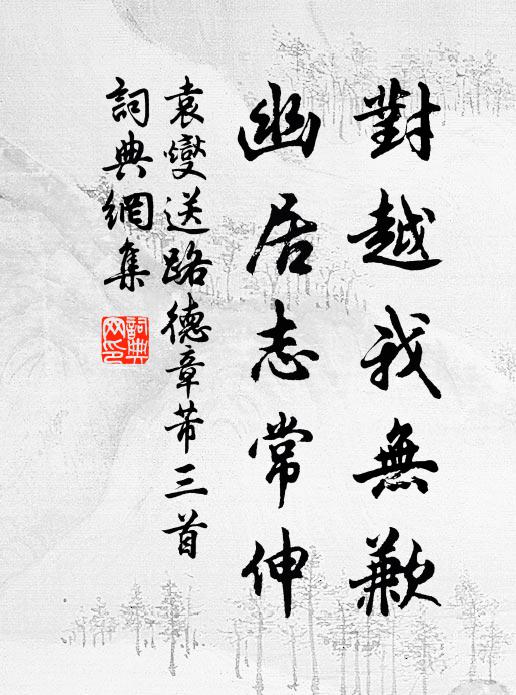 對越我無歉
幽居志常伸
袁燮送路德章芾三首
詞典網集
詞典網印